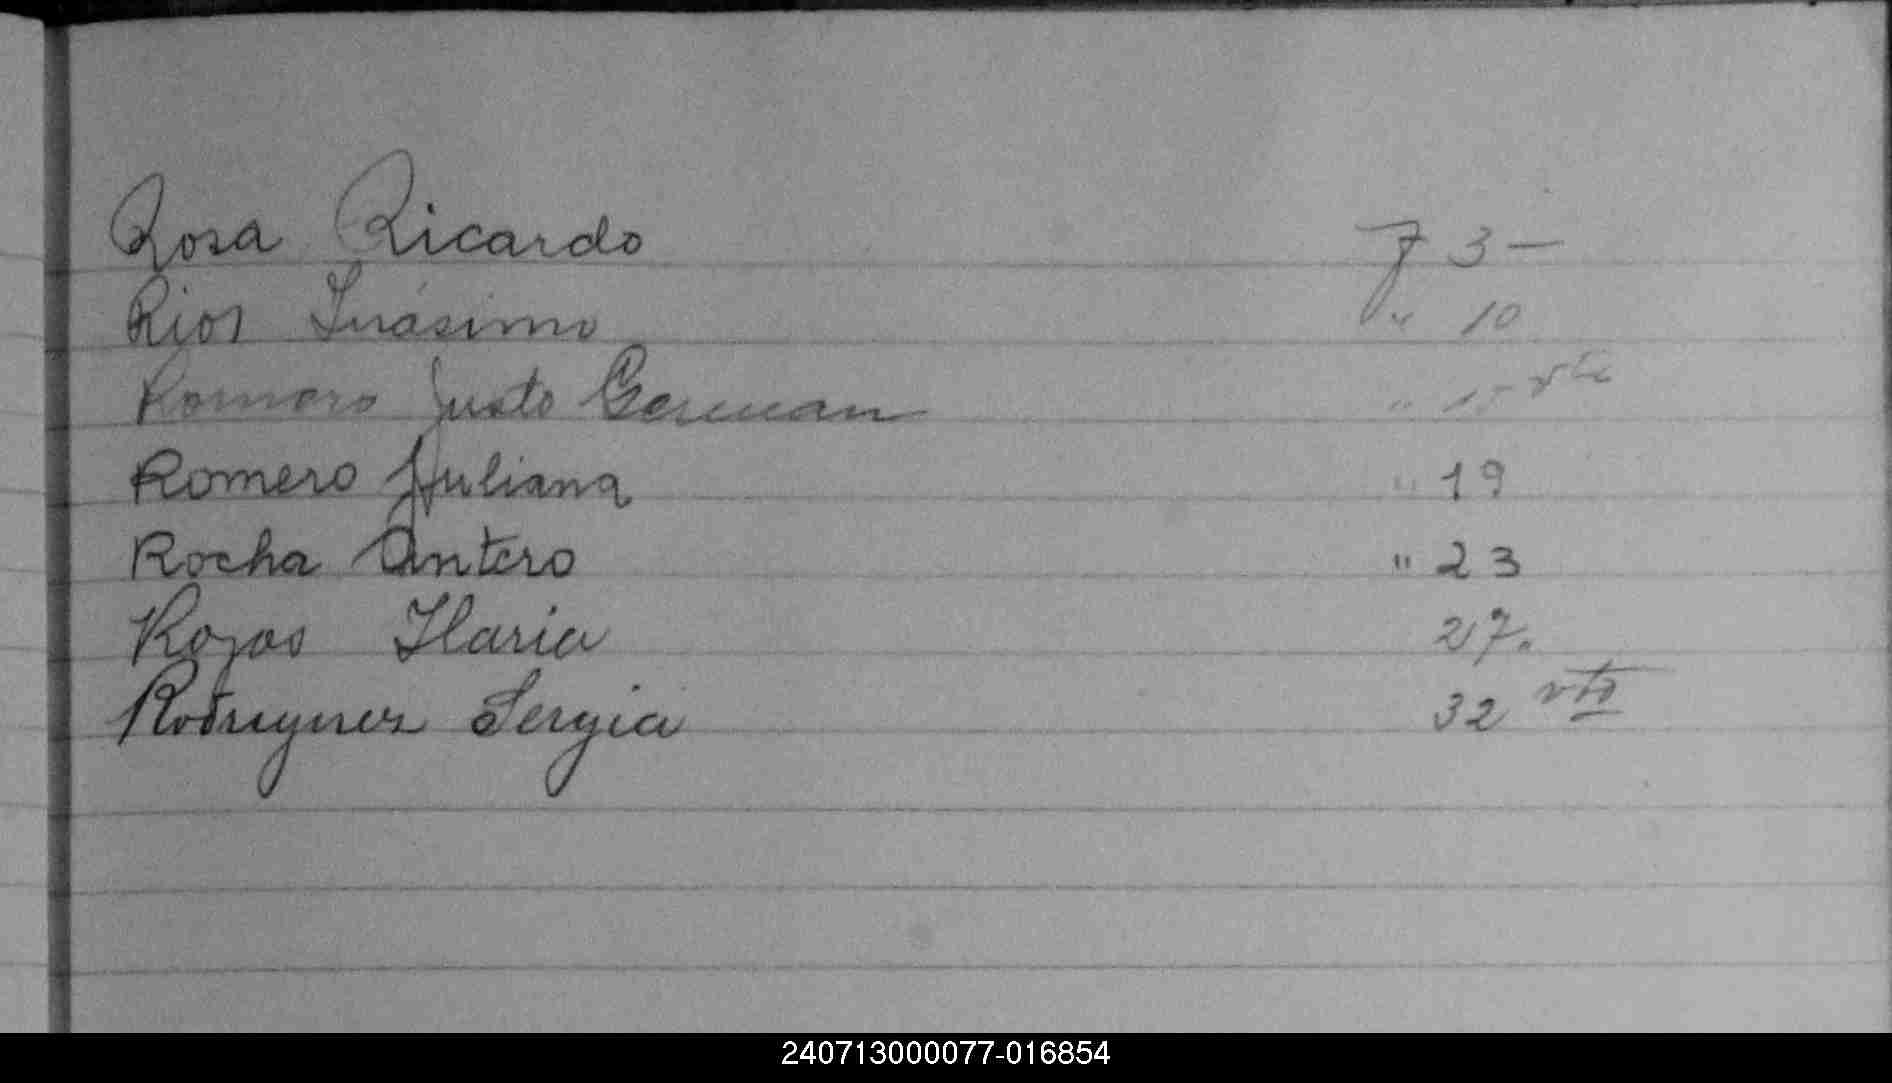 Rosa Ricardo f 3 —
Rios Inásimo " 10
Romero Justo German " 15 vta
Romero Juliana " 19
Rocha Antero " 23
Rojas Ilaria 27.
Rodriguez Sergia 32 vta
240713000077-016854